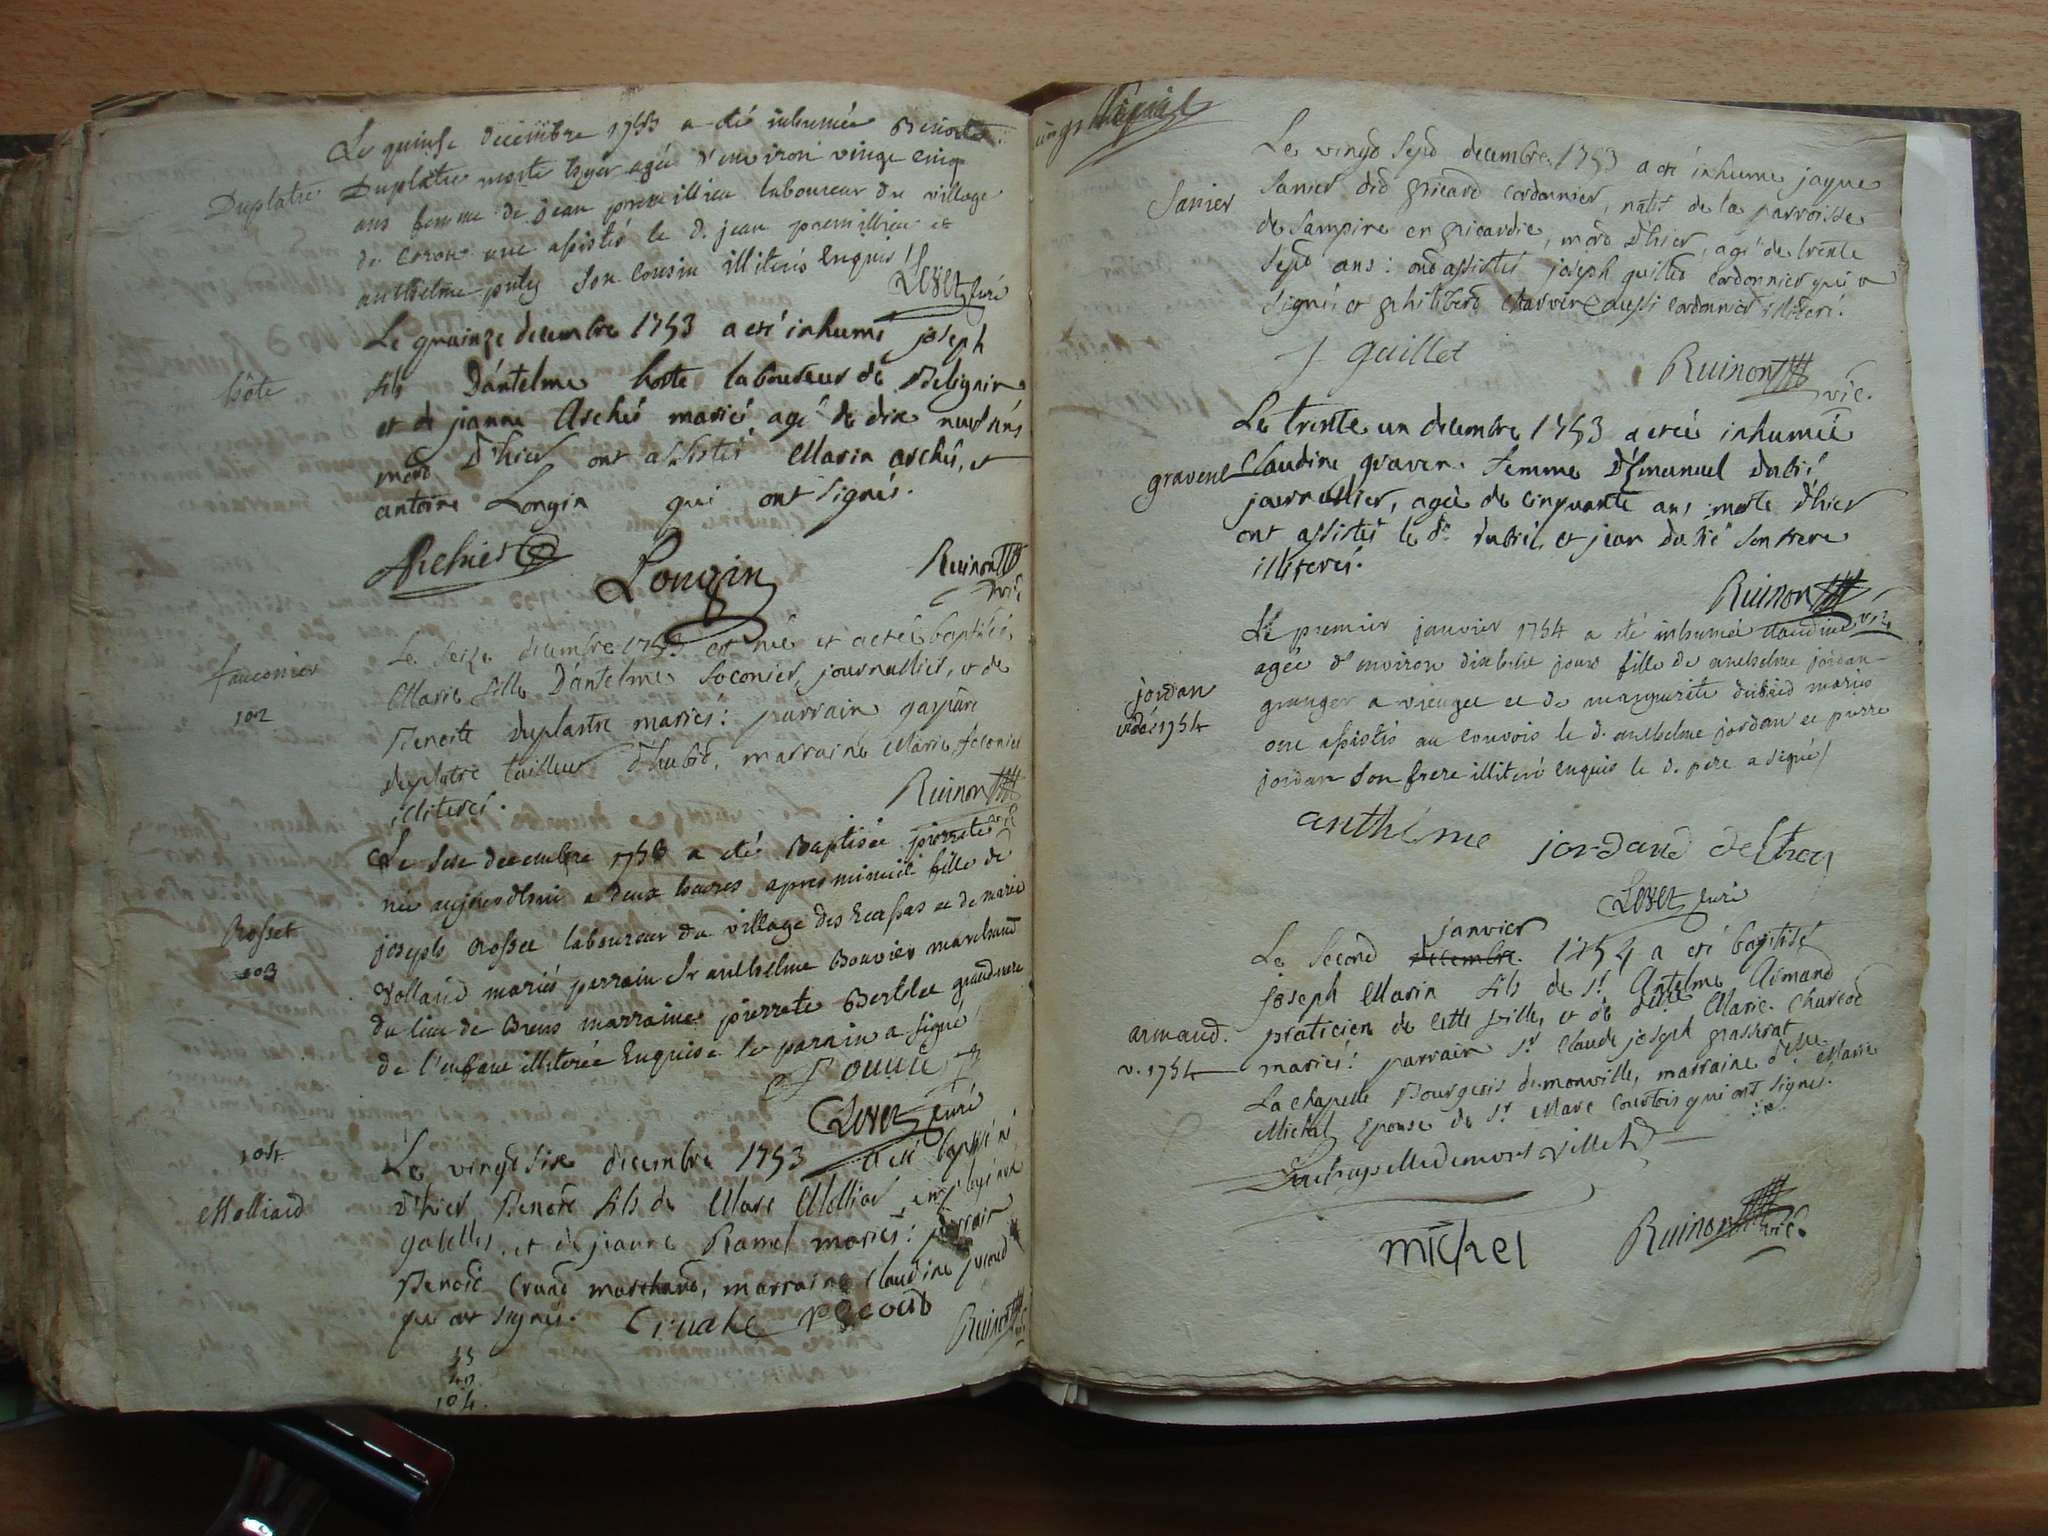 Le quinse decembre 1753 a eté inhumée Benoite
Duplatre
Duplatre morte hyer agée d'environ vingt cinq
ans femme de Jean premillieu laboureur du village
de Coron ont assistés le d. jean premillieu et
anthelme puley son cousin illiterés enquis /
Levet curé
Le quainze decembre 1753 a eté inhumé joseph
hôte
fils D'antelme hoste laboureur de Belignin
et de jeanne Aschés mariés, agé de dix neuf ans
mord D'hier ont assistés Marin archés, et
antoine Longin qui ont signés.
Longin
Ruinon vic.
Le seize decembre 1753 est née et a eté baptisée
fauconier
102
Marie fille D'antelme foconier, journallier, et de
Benoite duplastre mariés : parrain gaspard
duplatre tailleur d'habit, marraine Marie foconier
illiterés.
Ruinon vic
Le sese decembre 1753 a eté Baptisée pierrette
née aujourdhui a deux heures apres minuit fille de
Rosset
103
joseph Rosset laboureur du village des Ecassas et de marie
Volland mariés parrain Sr anthelme Bouvier marchand
du lieu de Brens marraine pierrete Berthet grandmere
de l'enfant illiterée Enquise le parain a signé
Levet curé
104
Le vingt six decembre 1753 a eté baptisé né
Molliard
d'hier Benoit fils de Marc Molliar, employé aux
gabelles, et de jeanne Ramel mariés : parrain
Benoit Cruad marchand, marraine Claudine pecoud
qui ont signés.
pecoud
Ruinon
55
49
104.
Le vingt sept decembre 1753 a eté inhumé jaque
Sanier
Sanier did picard cordonnier, natif de la parroisse
de Sampire en picardie, mord d'hier, agé de trente
sept ans : ond assistés joseph guilled cordonnier qui a
signé, et philiberd Charvin aussi cordonnier illiteré.
J guillet
Ruinon vic.
Le trente un decembre 1753 a etée inhumée
gravent
Claudine graven. femme D'Emanuel dubié
journallier, agée de cinquante ans : morte d'hier
ont assistés le d. dubié, et jean dubié son frere
illiterés.
Ruinon vic.
Le premier janvier 1754 a eté inhumée claudine
agée d'environ dixhuit jours fille de anthelme jordan
jordan
1754
granger a vieuget et de marguerite dubied mariés
ont assistés au convois le d. anthelme jordan et pierre
jordan son frere illiteré enquis le d. pere a signé /
anthelme jordand
Levet curé
janvier
Le Second decembre 1754 a eté baptisé
joseph Marin fils de Sr. Antelme Armand
armand.
v. 1754
praticien de cette ville, et de delle Marie Charcot
mariés : parrain Sr Claude joseph grasserat
La chapelle Bourgeois demonville, marraine delle Marie
Michel Epouse de Sr. Marc Courtois qui ont signés.
michel
Ruinon vic.